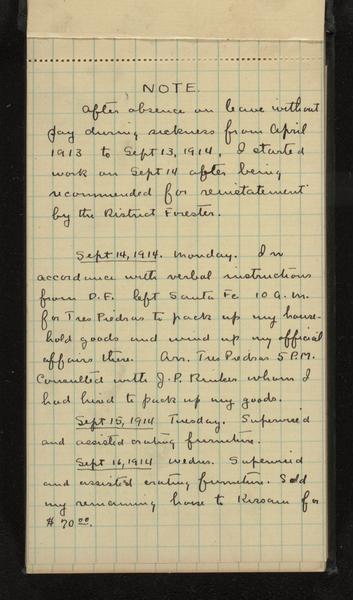 NOTE.
After absence on leave without
pay during sickness from April
1913 to Sept 13, 1914, I started
work on Sept 14 after being
recommended for reinstatement
by the District Forester.
Sept 14, 1914. Monday. In
accordance with verbal instructions
from D.F. left Santa Fe 10 A.M.
for Tres Piedras to pack up my house-
hold goods and wind up my official
affairs there. Arr. Tres Piedras 5 P.M.
Consulted with J.P. whom I
had hired to pack up my goods.
Sept 15, 1914 Tuesday. Supervised
and assisted crating furniture.
Sept 16, 1914 Wednes. Supervised
and assisted crating furniture. Sold
my remaining horse to for
$70.00.